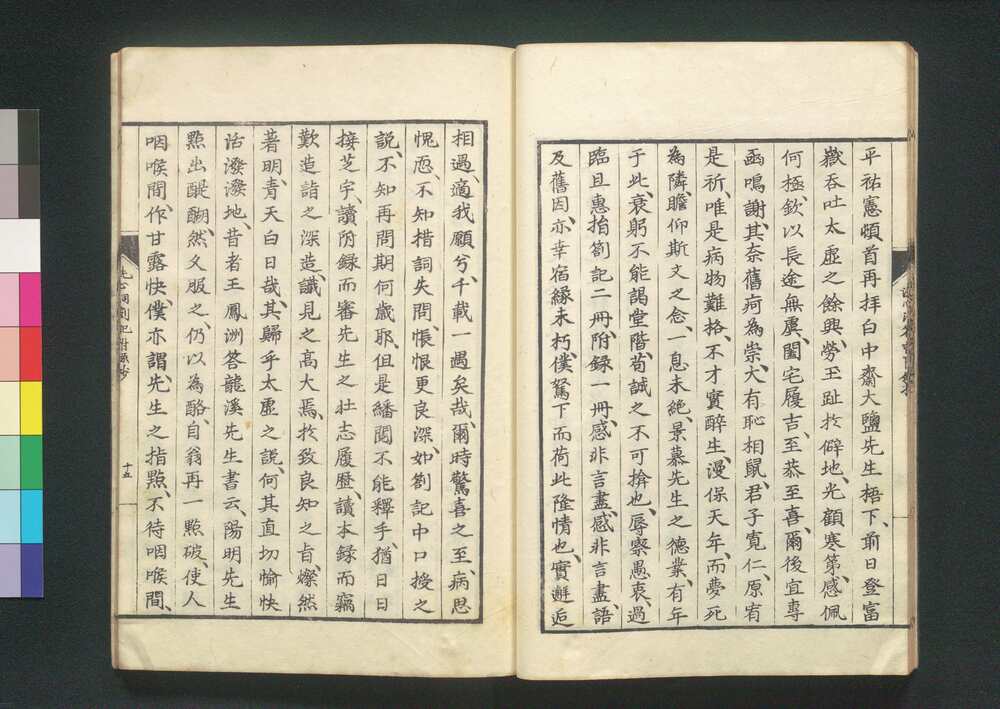 平祐憲頓首再拜白中齋大鹽先生梧下、前日登富
嶽吞吐太虛之餘興、勞玉趾於僻地、光顧寒第、感佩
何極、欽以長途無虞、闔宅履吉、至恭至喜、爾後宜專
函鳴謝、其奈舊痾為祟、大有恥相鼠、君子寬仁、原宥
是祈、唯是病物難格、不才實醉生、漫保天年、而夢死
為隣、瞻仰斯文之念、一息未絕、景慕先生之德業、有年
于此、衰躬不能謁堂階、苟誠之不可揜也、辱察愚衷、過
臨且惠抬劄記二冊、附錄一冊、感非言盡、感非言盡、語
及舊因、亦幸宿緣未朽、僕駑下而荷此隆情也、實邂逅
相遇、適我願兮、千載一遇矣哉、爾時驚喜之至、病思
愧恧、不知措詞失問、悵恨更良深、如劄記中口授之
說、不知再問期何歲耶、但是繙閱不能釋手、猶日日
接芝宇、讀附録而審先生之壯志履歷、讀本録而竊
歎造詣之深造、識見之高大焉、於致良知之旨、燦然
著明、青天白日哉、其歸乎太虛之說、何其直切愉快
活潑潑地、昔者王鳳洲答龍溪先生書云、陽明先生
點出醍醐、然久服之、仍以為酪、自翁再一點破、使人
咽喉間、作甘露快、僕亦謂、先生之指點、不待咽喉間、
十五